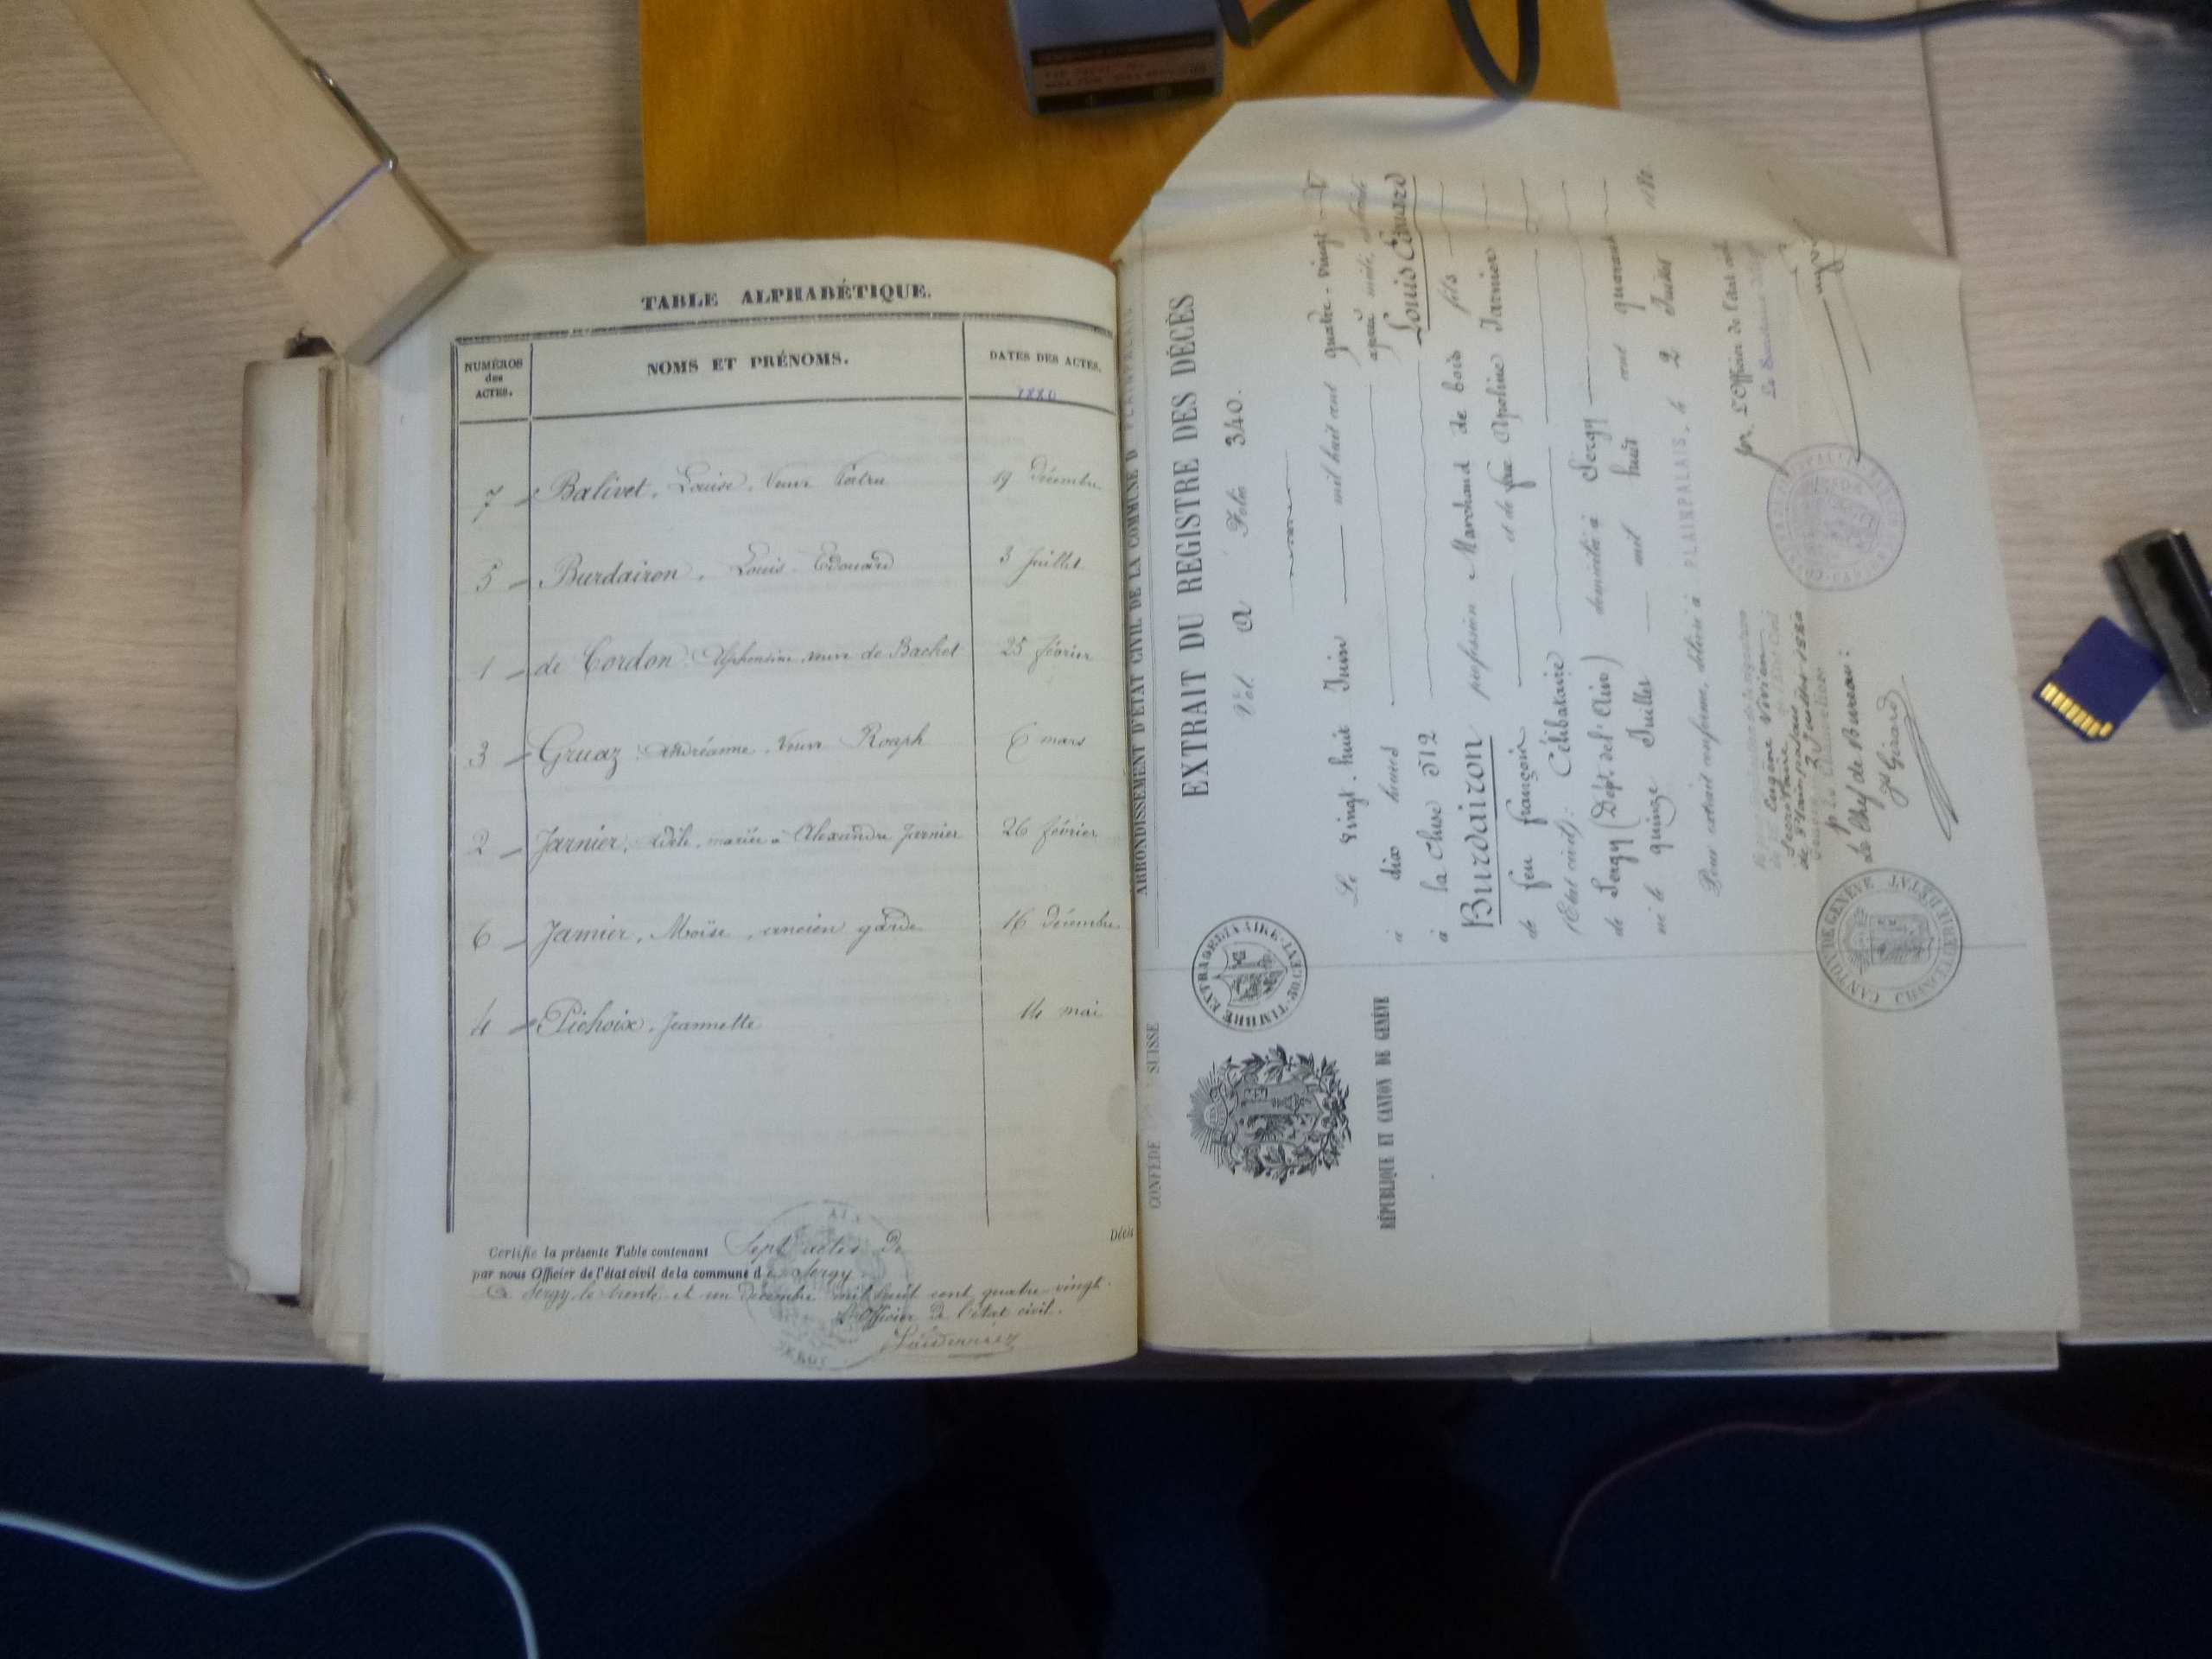 TABLE ALPHABÉTIQUE.
NUMÉROS des ACTES.
NOMS ET PRÉNOMS.
DATES DES ACTES.
1880
7 Balivet, Louise, Veuve 19 décembre
5 Burdairon, Louis Edouard 3 Juillet
1 de Cordon Alphonsine veuve de Bachet 25 février
3 Gruaz Andréanne, Veuve Roaph 6 mars
2 Jarnier, Adèle, mariée à Alexandre Jarnier 26 février
6 Jarnier, Moïse, ancien garde 16 décembre
4 Pichoix, Jeannette 14 mai
Certifie la présente Table contenant Sept actes de
par nous Officier de l'état civil de la commune de Sergy
à Sergy, le trente et un décembre mil huit cent quatre vingt.
L'Officier de l'état civil.
Décès
CONFÉDÉ SUISSE
ARRONDISSEMENT D'ÉTAT CIVIL DE LA COMMUNE D PLAINPALAIS
RÉPUBLIQUE ET CANTON DE GENÈVE
EXTRAIT DU REGISTRE DES DÉCÈS
Vol. A Folio 340.
Le vingt-huit Juin mil huit cent quatre-vingt
à dix heures après midi, est décédé
à la Cluse 312 Louis Edouard
Burdairon profession Marchand de bois fils
de feu François et de feue Apoline Jarnier
(Etat civil): Célibataire
de Sergy (Dépt. de l'Ain) domicilié à Sergy
né le quinze Juillet mil huit cent quarante
Pour extrait conforme, délivré à PLAINPALAIS, le 2 Juillet 1880
pr. L'Officier de l'état civil
TIMBRE EXTRAORDINAIRE
CANTON DE GENÈVE
CHANCELLERIE D'ETAT
Eugène Vivien
Secrétaire
de Plainpalais
2 Juillet 1880
p. la Chancellerie
Le Chef de Bureau:
Girard